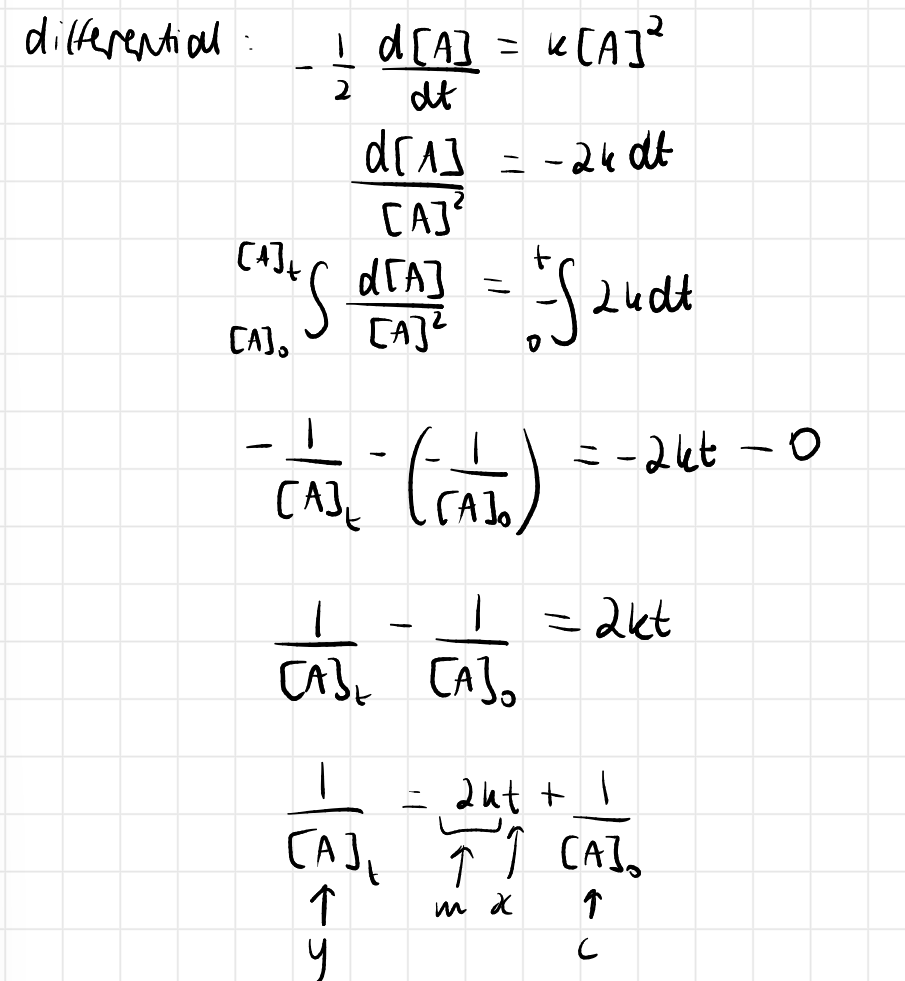 differential : - 1/2 d[A]/dt = k[A]²
d[A]/[A]² = -2k dt
[A]t [A]₀ ∫ d[A]/[A]² = - t 0 ∫ 2k dt
- 1/[A]t - (- 1/[A]₀) = -2kt - 0
1/[A]t - 1/[A]₀ = 2kt
1/[A]t = 2kt + 1/[A]₀
↑ ↑ ↑ ↑
y m x c